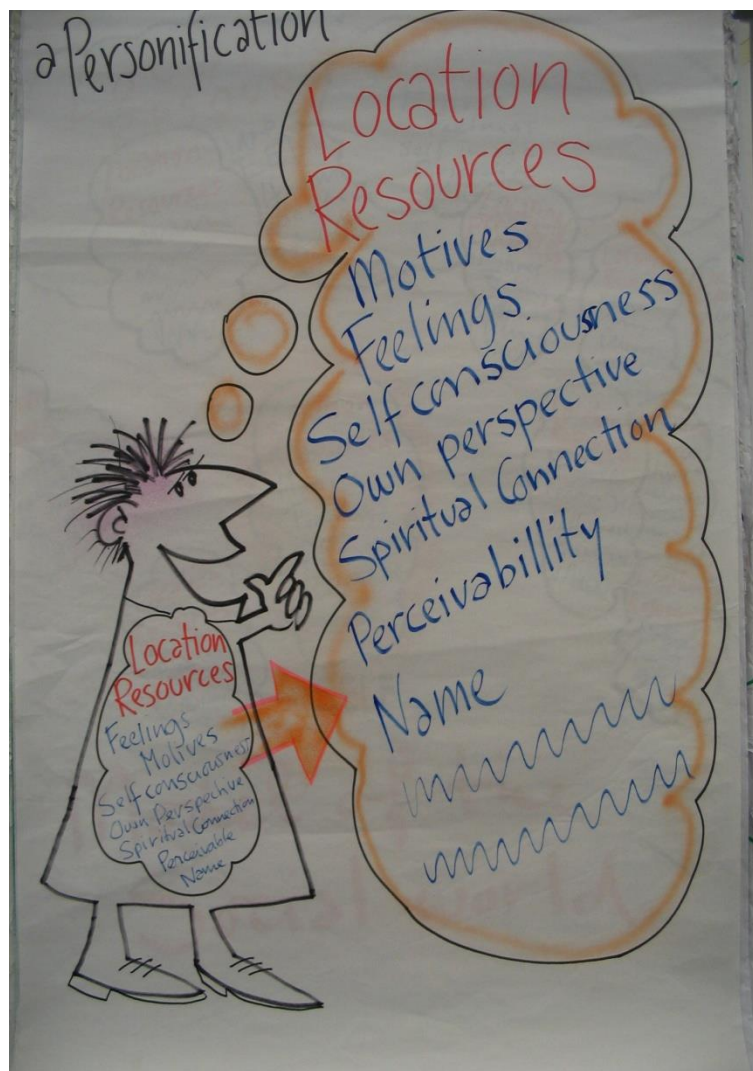 a Personification
Location
Resources
Motives
Feelings
Self consciousness
Own perspective
Spiritual Connection
Perceivabillity
Name
Location
Resources
Feelings
Motives
Self consciousness
Own Perspective
Spiritual Connection
Perceivable
Name